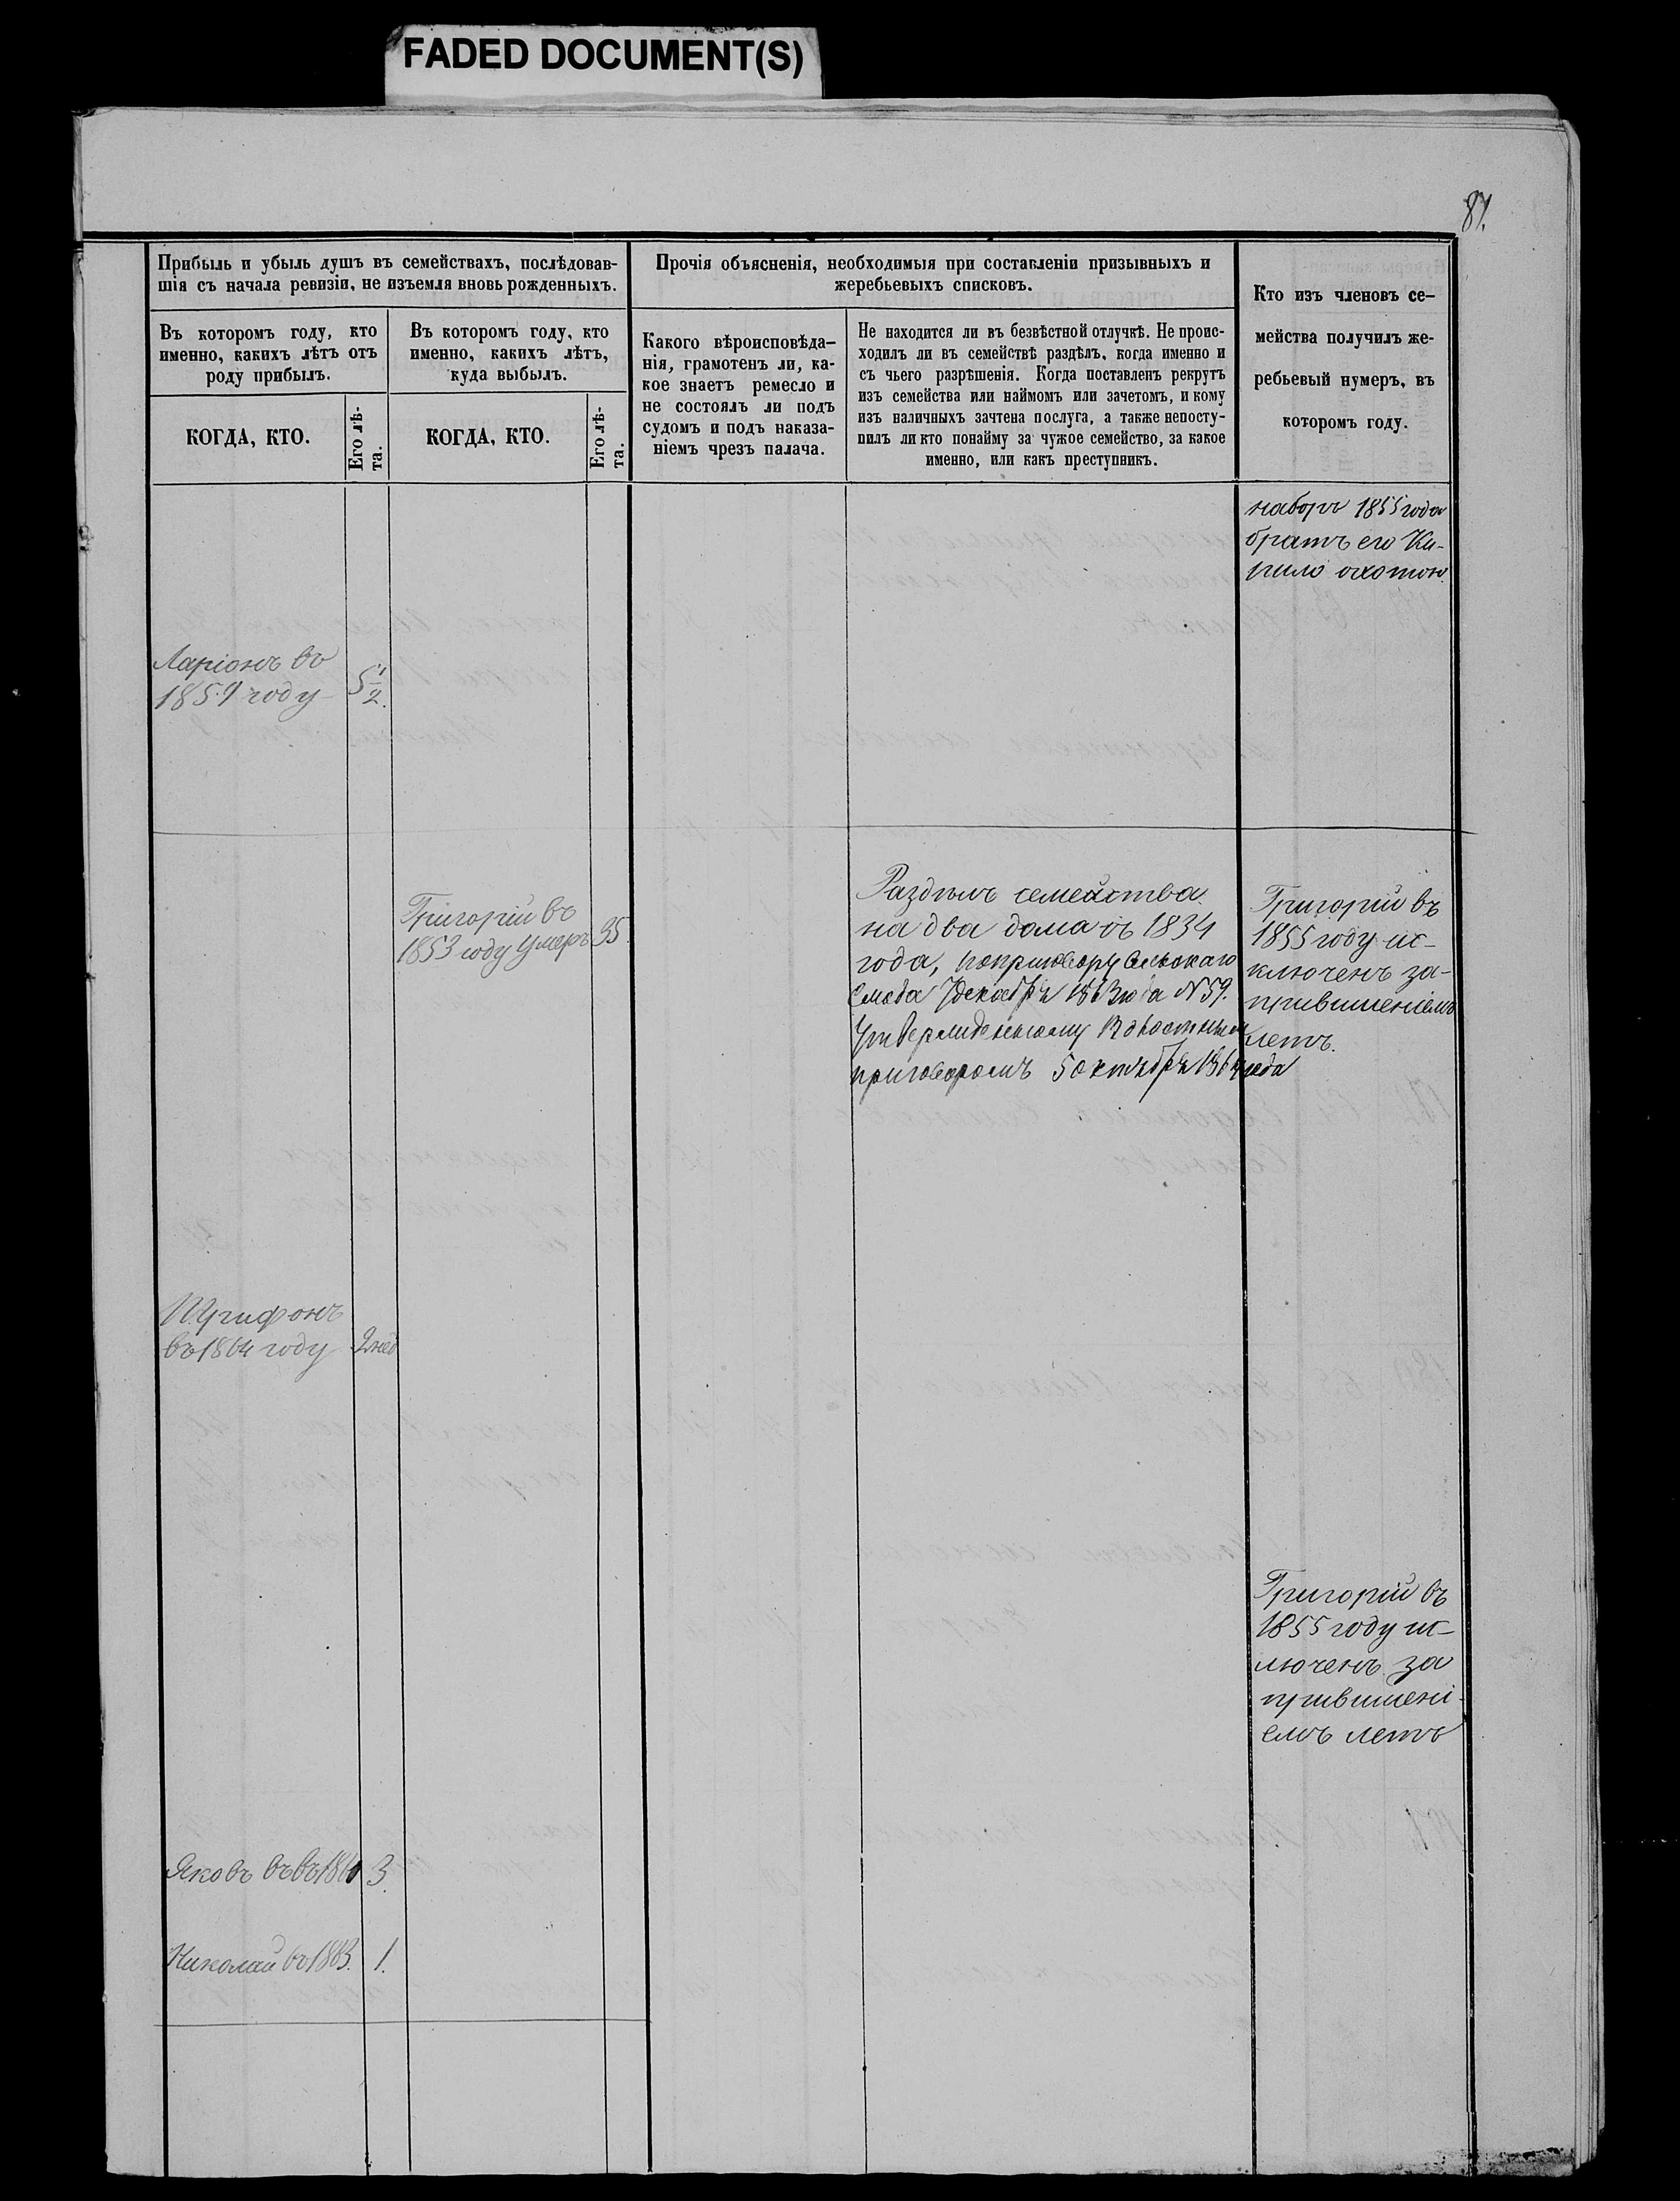 FADED DOCUMENT(S)
81.
Прибыль и убыль душъ въ семействахъ, послѣдовав-
шія съ начала ревизіи, не изъемля вновь рожденныхъ.
Въ которомъ году, кто
именно, какихъ лѣтъ отъ
роду прибылъ.
КОГДА, КТО.
Его лѣ-
та.
Въ которомъ году, кто
именно, какихъ лѣтъ,
куда выбылъ.
КОГДА, КТО.
Его лѣ-
та.
Прочія объясненія, необходимыя при составленіи призывныхъ и
жеребьевыхъ списковъ.
Какого вѣроисповѣда-
нія, грамотенъ ли, ка-
кое знаетъ ремесло и
не состоялъ ли подъ
судомъ и подъ наказа-
ніемъ чрезъ палача.
Не находится ли въ безвѣстной отлучкѣ. Не проис-
ходилъ ли въ семействѣ раздѣлъ, когда именно и
съ чьего разрѣшенія. Когда поставленъ рекрутъ
изъ семейства или наймомъ или зачетомъ, и кому
изъ наличныхъ зачтена послуга, а также непосту-
пилъ ли кто понайму за чужое семейство, за какое
именно, или какъ преступникъ.
Кто изъ членовъ се-
мейства получилъ же-
ребьевый нумеръ, въ
которомъ году.
наборъ 1855 года
братъ его Ки-
рило охотою.
Ларіонъ въ
1859 году
5 1/2.
Григорій въ
1853 году умеръ
35.
Раздѣлъ семейства
на два дома съ 1834
года, поприговору Сельскаго
Схода 7 декабря 1863 года N 59.
приговоромъ 5 октября 1864 года
Григорій въ
1855 году ис-
ключенъ за-
привишеніемъ
летъ.
Трифонъ
въ 1864 году
2 нед
Григорій въ
1855 году ис-
люченъ за
привишені-
емъ летъ
Яковъ въ въ 1860
3.
Николай въ 1863.
1.